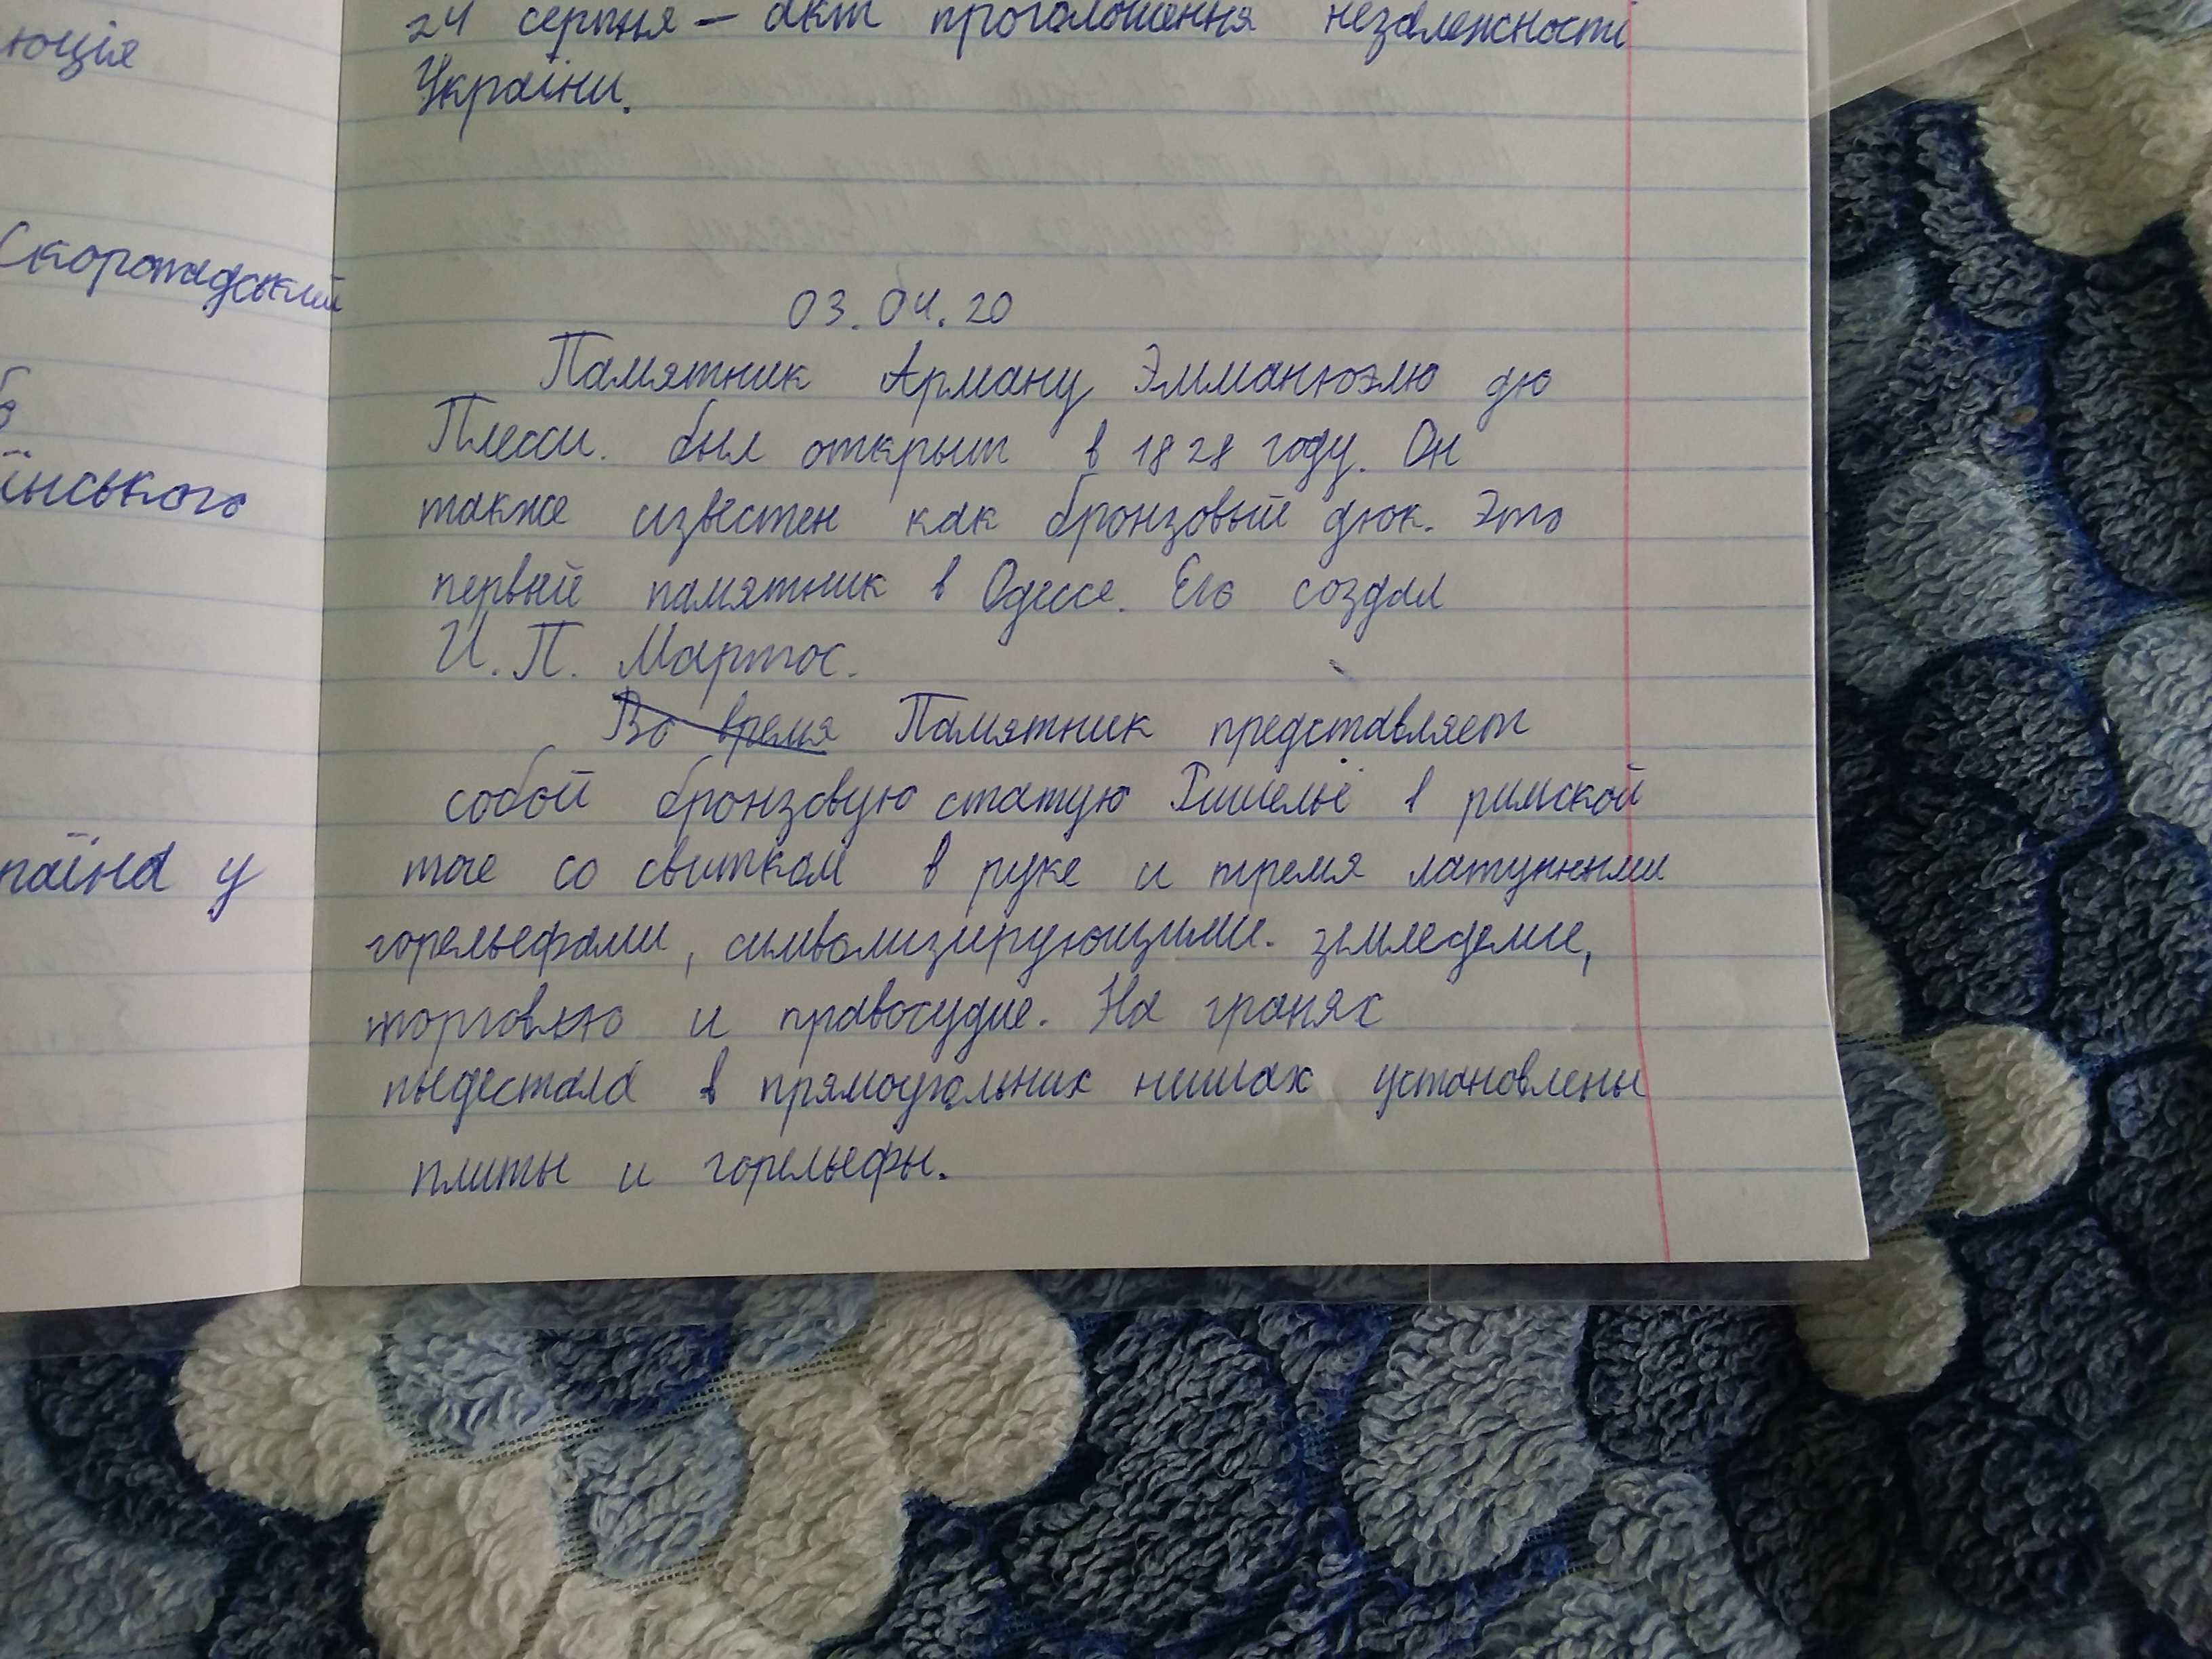 юція
Скоропадський
б
їнського
раїна у
24 серпня – акт проголошення незалежності
України.
03.04.20
Памятник Арману Эммануэлю дю
Плесси. был открыт в 1828 году. Он
также известен как бронзовый дюк. Это
первый памятник в Одессе. Его создал
И. П. Мартос.
Во время Памятник представляет
собой бронзовую статую Ришелье в римской
тоге со свитком в руке и тремя латунными
горельефами, символизирующими. земледелие,
торговлю и правосудие. На гранях
пьедестала в прямоугольних нишах установлены
плиты и горельефы.